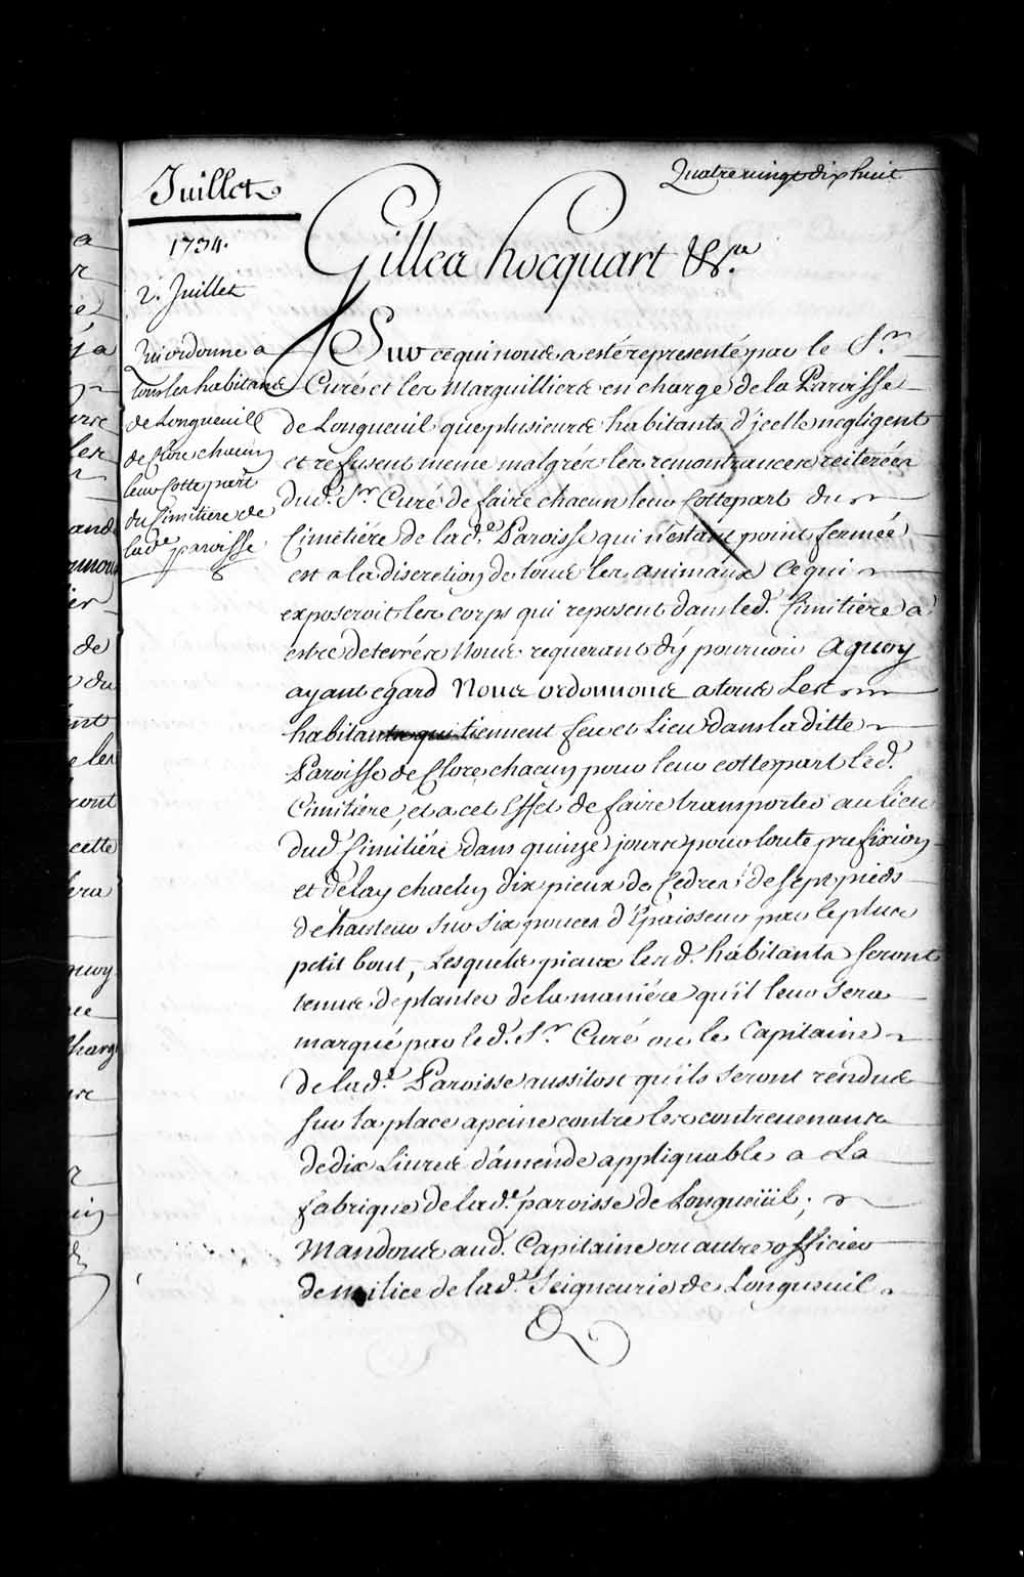 Quatre vingt dix huit
Juillet
1734.
2. Juillet
Qui ordonne a
tous les habitans
de Longueuill
de Clore chacun
leur Cotte part
du Cimitiere de
lad.e paroisse.
Gilles hocquart &c.a
Sur ce qui nous a esté representé par le S.r
Curé et les Marguilliers en charge de la Paroisse
de Longueuil que plusieurs habitants d'jcelle negligent
et refusent meme malgrér les remontrances reiterées
dud. S.r Curé de faire chacun leur Cottepart du
Cimetiére de lad.e Paroisse qui n'estant point fermée
est a la discretion de tous les animaux Ce qui
exposeroit les corps qui reposent dans led. Cimitiere a
estre deterrére Nous requerant d'y pourvoir Aquoy
ayant egard Nous ordonnons a tous Les
habitants qui tiennent feu et Lieu dans la ditte
Paroisse de Clore chacun pour leur cottepart led.
Cimitiére, et a cet Effet de faire transporter au lieu
dud. Cimitiére dans quinze jours pour toute prefixion
et delay chacun dix pieux de Cedres de sept pieds
de hauteur sur six pouces d'Epaisseur par le plus
petit bout, Lesquels pieux les d. habitants seront
tenus de planter de la maniére qu'il leur sera
marqué par led. S.r Curé ou le Capitaine
de lad.e Paroisse aussitost qu'ils seront rendus
sur la place a peine contre les contrevenants
de dix Livres d'amende appliquable a La
fabrique de lad.e paroisse de Longueüil;
Mandons aud. Capitaine ou autre officier
de milice de lad.e Seigneurie de Longueuil